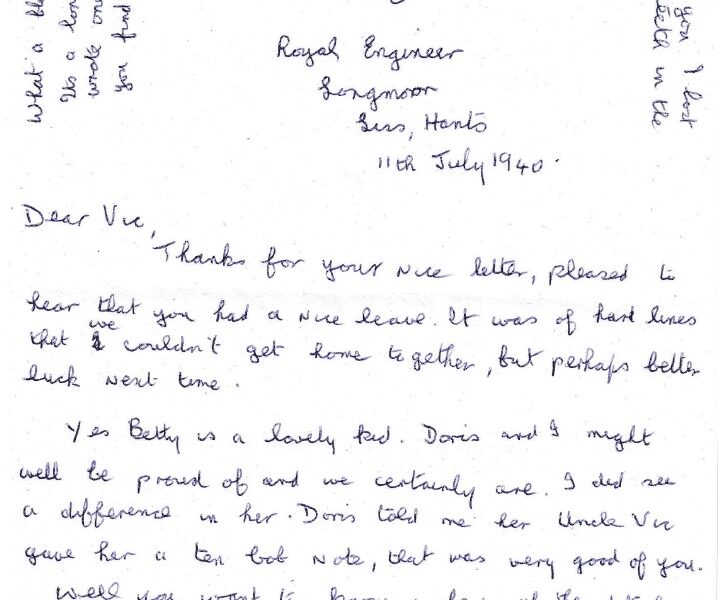 What a bl
Its a lon
wrote one
you find
you I lost
teeth in the
Royal Engineer
Longmoor
Liss, Hants
11th July 1940.
Dear Vic,
Thanks for your nice letter, pleased to
hear that you had a nice leave. It was of hard lines
that we couldn't get home together, but perhaps better
luck next time.
Yes Betty is a lovely kid. Doris and I might
well be proud of and we certainly are. I did see
a difference in her. Doris told me her Uncle Vic
gave her a ten bob note, that was very good of you.
Well you want to know